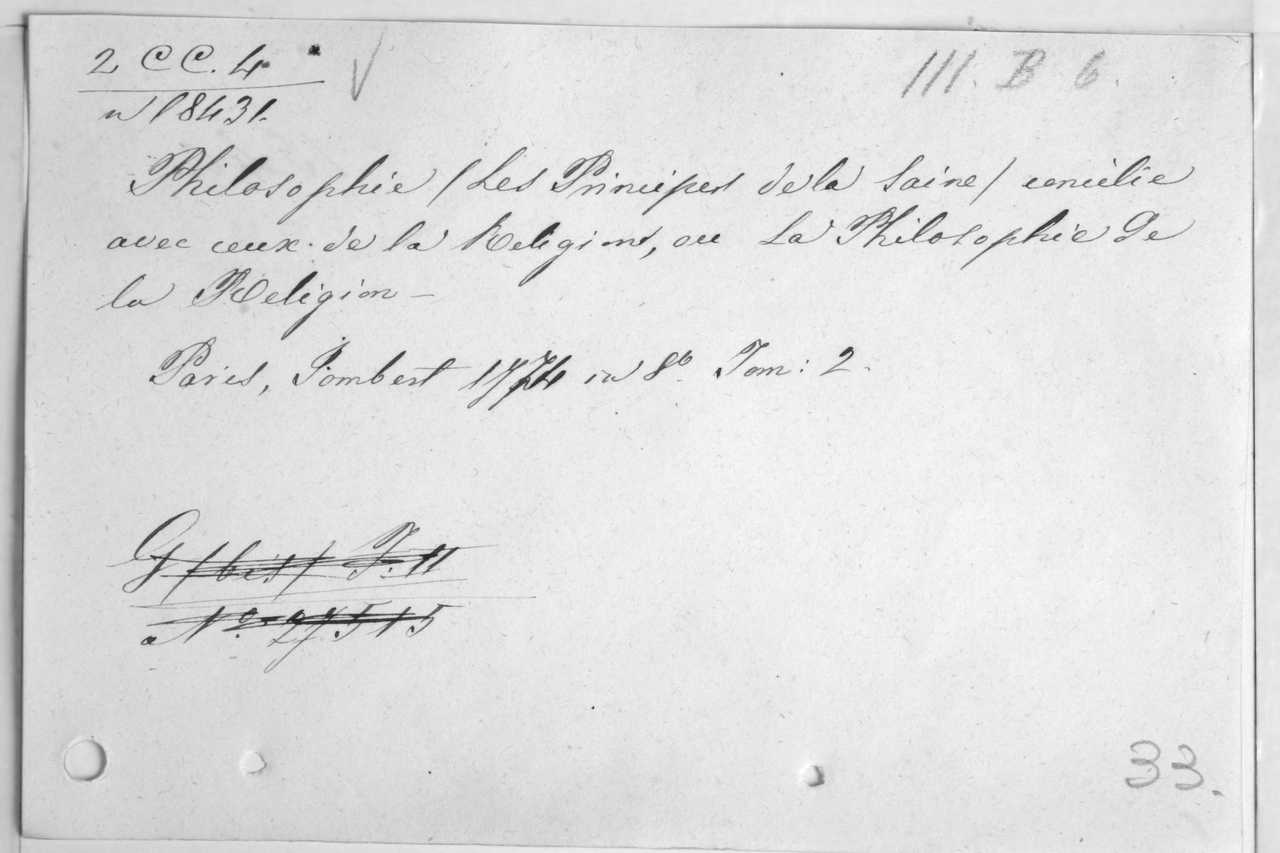 2 CC. 4
III. B 6.
n 18431.
Philosophie (Les Principes de la Saine) concilie
avec ceux de la Religion, ou La Philosophie de
la Religion —
Paris, Jombert 1774 in 8° Tom: 2.
G (bis) F. 11
a N° 27515
33.